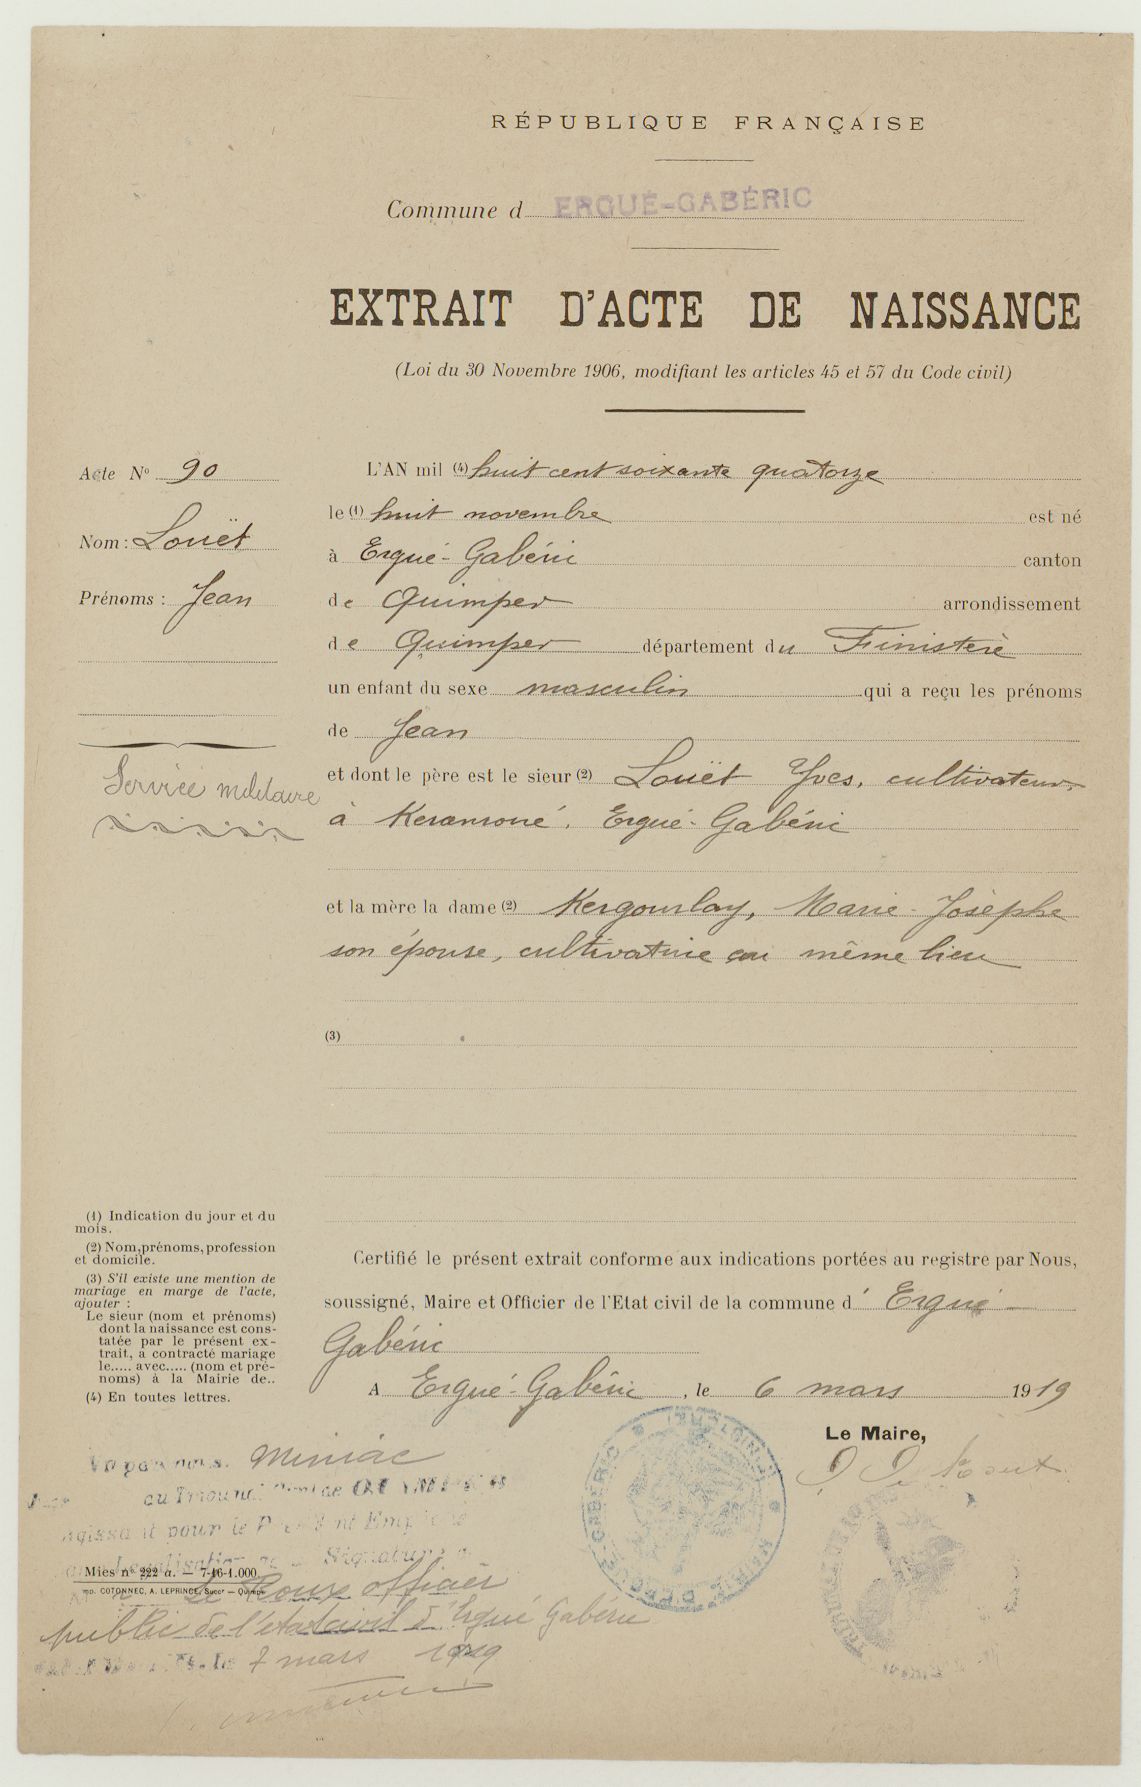 RÉPUBLIQUE FRANÇAISE
Commune d ERGUÉ-GABÉRIC
EXTRAIT D'ACTE DE NAISSANCE
(Loi du 30 Novembre 1906, modifiant les articles 45 et 57 du Code civil)
Acte No 90
Nom : Louët
Prénoms : Jean
Service militaire
L'AN mil (4) huit cent soixante quatorze
le (1) huit novembre est né
à Ergué-Gabéric canton
de Quimper arrondissement
de Quimper département du Finistère
un enfant du sexe masculin qui a reçu les prénoms
de Jean
et dont le père est le sieur (2) Louët Yves, cultivateur
à , Ergué-Gabéric
et la mère la dame (2) Kergourlay, Marie-Josèphe
son épouse, cultivatrice au même lieu
(3)
(1) Indication du jour et du
mois.
(2) Nom, prénoms, profession
et domicile.
(3) S'il existe une mention de
mariage en marge de l'acte,
ajouter :
Le sieur (nom et prénoms)
dont la naissance est cons-
tatée par le présent ex-
trait, a contracté mariage
le..... avec..... (nom et pré-
noms) à la Mairie de..
(4) En toutes lettres.
Certifié le présent extrait conforme aux indications portées au registre par Nous,
soussigné, Maire et Officier de l'Etat civil de la commune d' Ergué-
Gabéric
A Ergué-Gabéric, le 6 mars 1919
Le Maire,
Vu par nous. Miniac
au Tribunal de QUIMPER
agissant pour le Président Empêché
Légalisation Signature
Le Roux officier
public de l'état civil d'Ergué Gabéric
le 7 mars 1919
Mies no 222 a. — 7-16-1.000
COTONNEC, A. LEPRINCE, Succr — Quimper
MAIRIE D'ERGUÉ-GABÉRIC